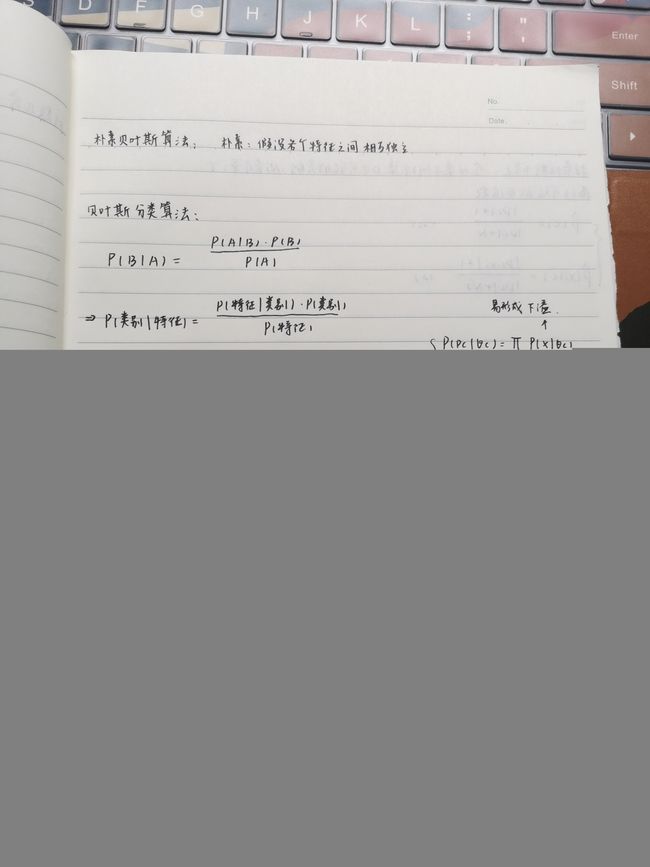 S D F G H J K L : ; " ' Enter
Shift
No.
Date.
朴素贝叶斯算法： 朴素：假设各个特征之间相互独立
贝叶斯分类算法：
P(B|A) = P(A|B)·P(B) / P(A)
⇒ P(类别|特征) = P(特征|类别)·P(类别) / P(特征)
易形成下溢.
↑